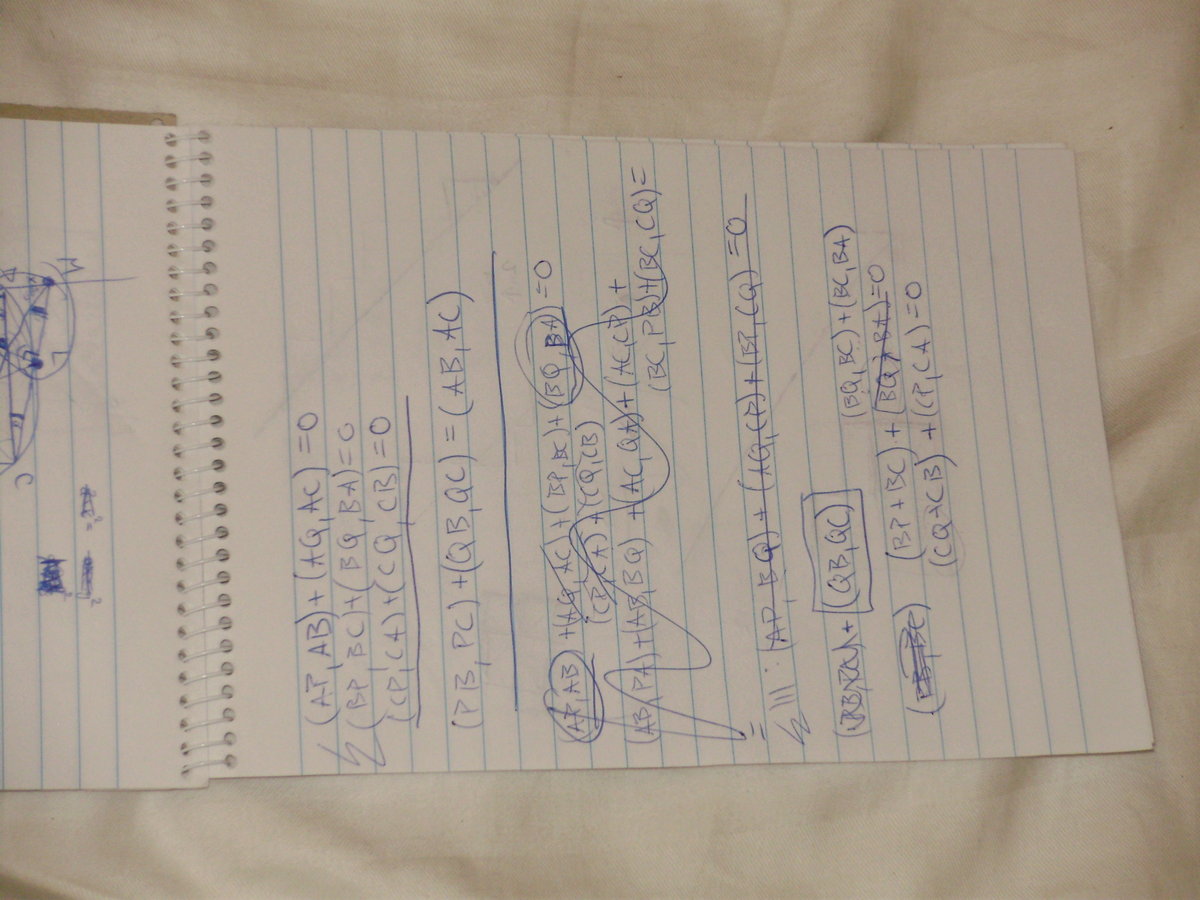 (AP, AB) + (AQ, AC) = 0
(BP, BC) + (BQ, BA) = 0
(CP, CA) + (CQ, CB) = 0
(PB, PC) + (QB, QC) = (AB, AC)
(AP, AB) + (AQ, AC) + (BP, BC) + (BQ, BA) = 0
(CP, CA) + (CQ, CB)
(AB, PA) + (AB, BQ) + (AC, QA) + (AC, CP) +
(BC, PB) + (BC, CQ) =
= (AP, BQ) + (AQ, CP) + (BP, CQ) = 0
(PB, PC) + (QB, QC)
(BQ, BC) + (BC, BA)
(BP + BC) + (BQ, BA) = 0
(CQ + CB) + (CP, CA) = 0
M
B
C